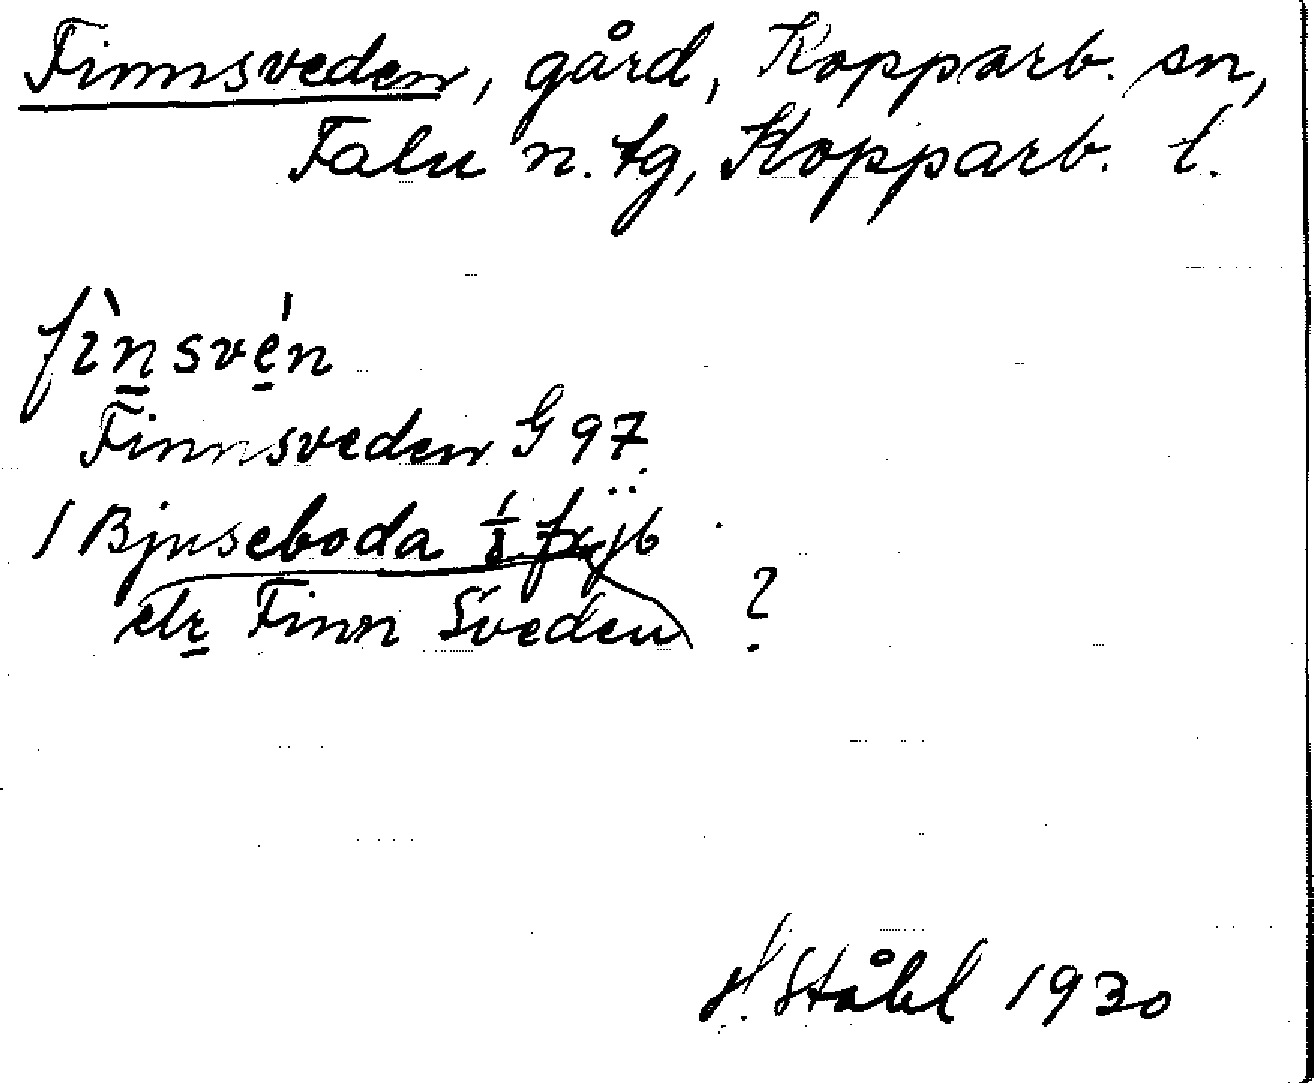 Finnsveden, gård, Kopparb. sn,
Falu n. tg, Kopparb. l.
fìnsvén
Finnsveden G 97
1 Bjuseboda 1/8
Finn Sveden ?
H. Ståhl 1930